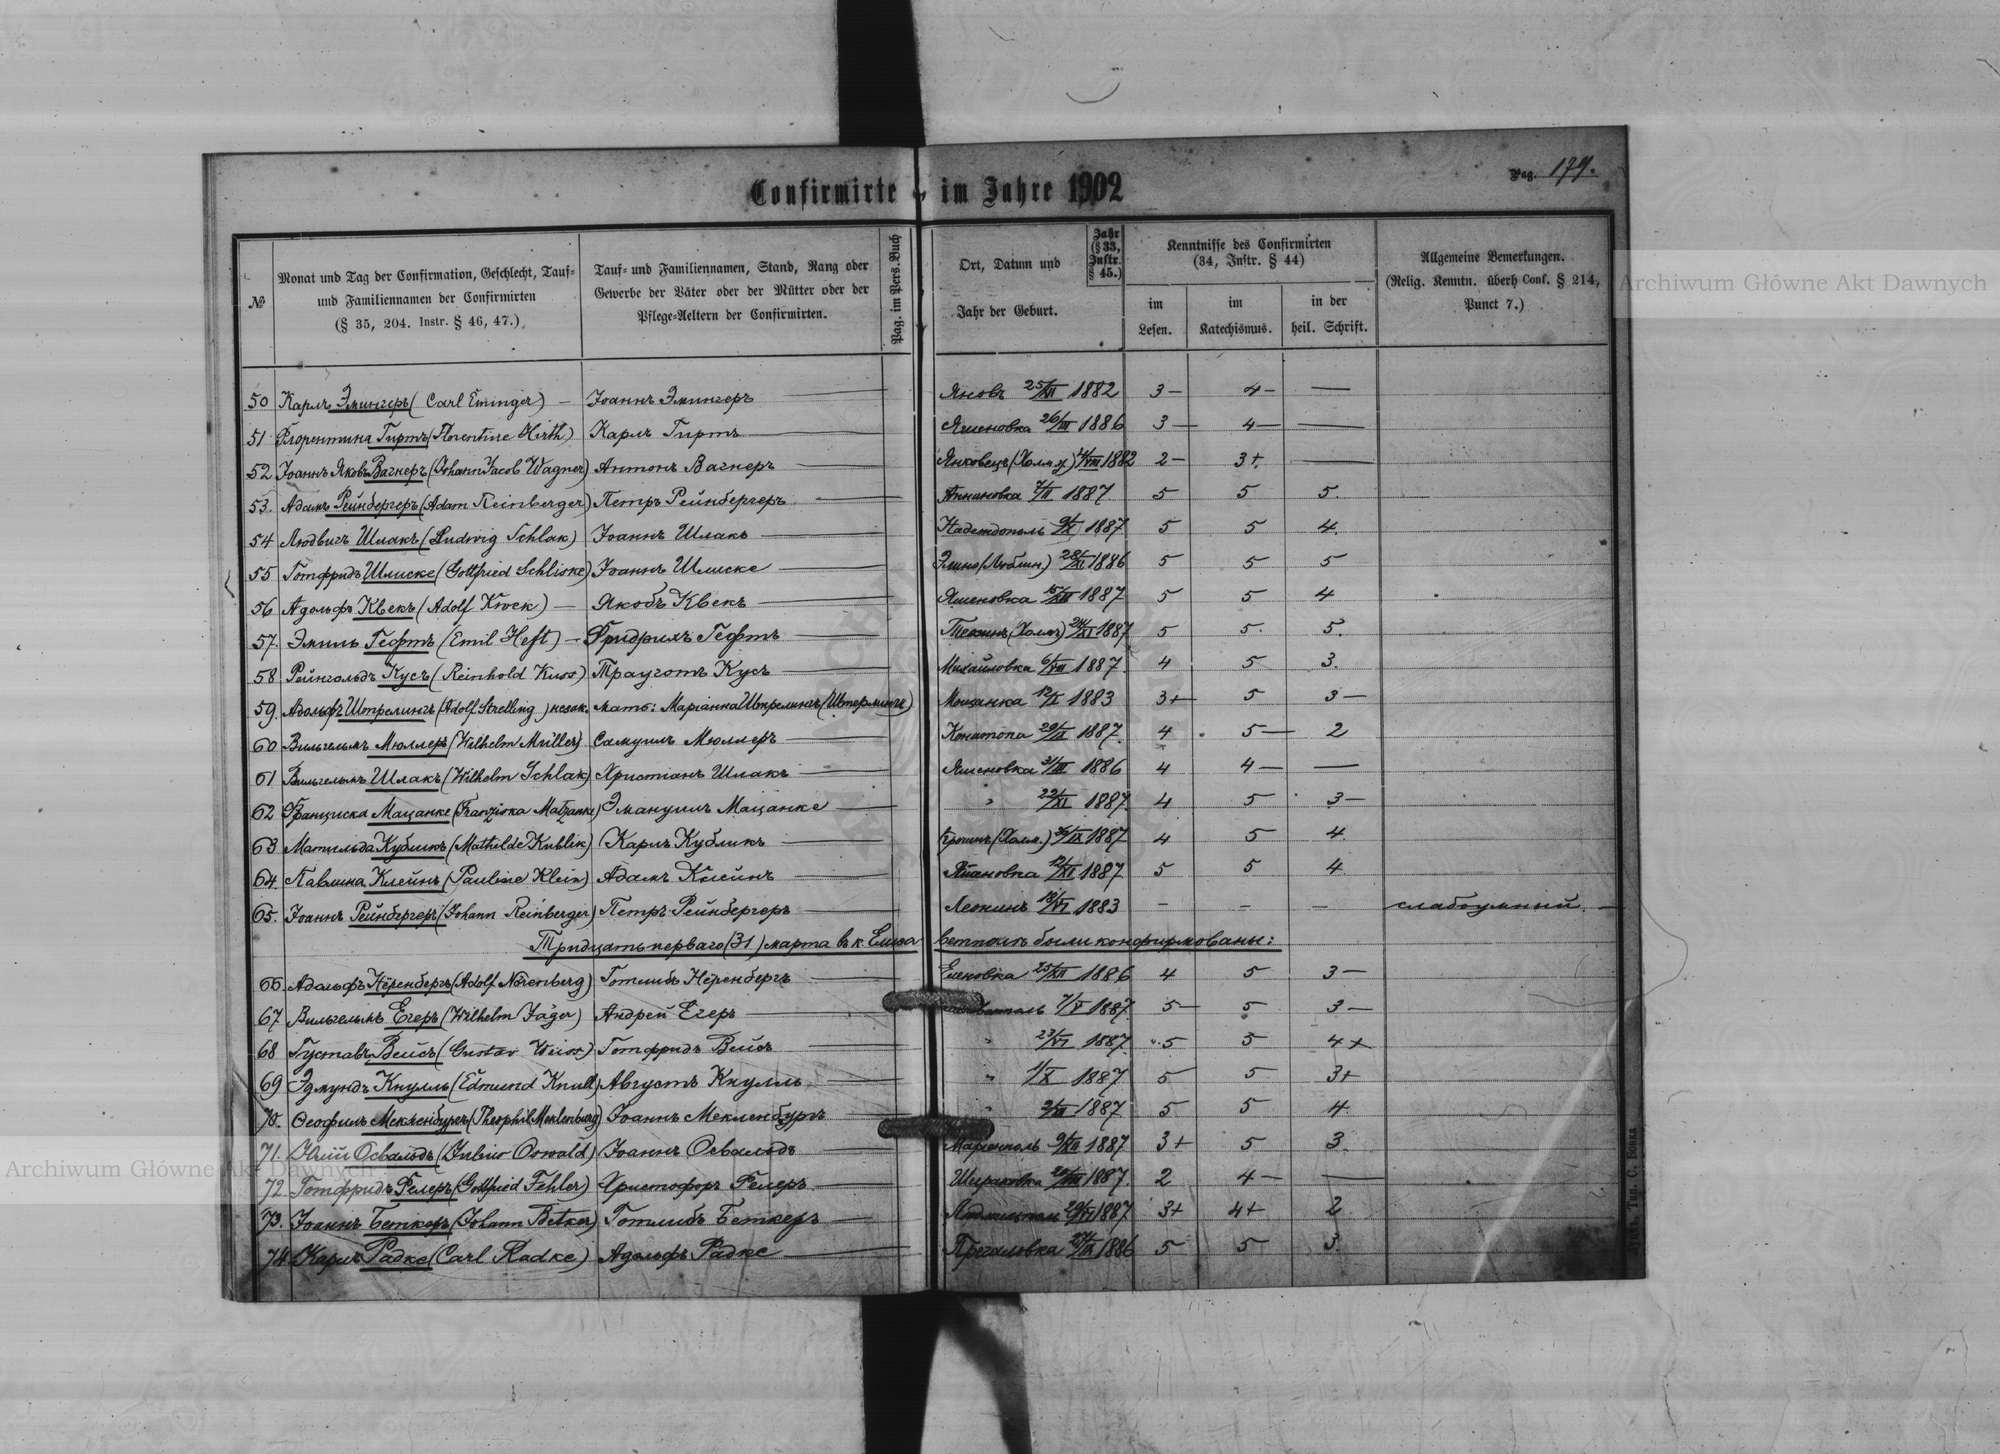 Pag. 179.
Confirmirte im Jahre 1902
№
Monat und Tag der Confirmation, Geschlecht, Tauf-
und Familiennamen der Confirmirten
(§ 35, 204. Instr. § 46, 47.)
Tauf- und Familiennamen, Stand, Rang oder
Gewerbe der Väter oder der Mütter oder der
Pflege-Aeltern der Confirmirten.
Pag. im Pers.Buch
Ort, Datum und
Jahr der Geburt.
Jahr
(§ 33,
Instr.
§ 45.)
Kenntnisse des Confirmirten
(34, Instr. § 44)
im
Lesen.
im
Katechismus.
in der
heil. Schrift.
Allgemeine Bemerkungen.
(Relig. Kenntn. überh Conf. § 214,
Punct 7.)
50 Карлъ Эмингеръ (Carl Eminger) — Іоаннъ Эмингеръ — Яновъ 25/XII 1882 3— 4— —
51 Флорентина Гиртъ (Florentine Hirth) Карлъ Гиртъ — Яшеновка 26/III 1886 3— 4— —
52 Іоаннъ Яковъ Вагнеръ (Johann Jacob Wagner) Антонъ Вагнеръ — Янковецъ (Холм.у.) /VIII 1882 2— 3+. —
53. Адамъ Рейнбергеръ (Adam Reinberger) Петръ Рейнбергеръ — Аннановка 7/II 1887. 5 5 5.
54 Людвигъ Шлакъ (Ludwig Schlak) Іоаннъ Шлакъ — Надеждополь 9/X 1887 5 5 4.
55 Готфридъ Шлиске (Gottfried Schliske) Іоаннъ Шлиске — (Люблин.) 28/XI 1886 5 5 5
56 Адольфъ Квекъ (Adolf Kwek) — Якобъ Квекъ — Яшеновка 15/XII 1887 5 5 4
57. Эмиль Гефтъ (Emil Heft) — Фридрихъ Гефтъ — (Холм.) 24/XI 1887 5 5. 5.
58 Рейнгольдъ Кусъ (Reinhold Kuss) Трауготъ Кусъ — Михайловка 6/VIII 1887. 4 5 3.
59. Адольфъ Штрелингъ (Adolf Strelling) незак. мать: Маріанна Штрелингъ (Штерлингъ) Мощанка 12/X 1883 3+ 5 3—
60 Вильгельмъ Мюллеръ (Wilhelm Müller) Самуилъ Мюллеръ — Конатопа 20/IX 1887. 4 5— 2
61 Вильгельмъ Шлакъ (Wilhelm Schlak) Христіанъ Шлакъ — Яшеновка 31/III 1886 4 4— —
62 Франциска Мацанке (Franziska Matzanke) Эмануилъ Мацанке — " 22/XI 1887. 4 5 3—
63 Матильда Кубликъ (Mathilde Kublik) Карлъ Кубликъ — (Холм.) /IX 1887. 4 5 4.
64. Павлина Клейнъ (Pauline Klein) Адамъ Клейнъ — 12/XI 1887. 5 5 4
65. Іоаннъ Рейнбергеръ (Johann Reinberger) Петръ Рейнбергеръ — Леонинъ 18/VI 1883 — — — слабоумный. —
Тридцать перваго (31) марта въ к. Елисаветполѣ были конфирмованы:
66. Адольфъ Нёренбергъ (Adolf Nörenberg) Готлибъ Нёренбергъ — Еленовка 25/XII 1886 4 5 3—
67. Вильгельмъ Егеръ (Wilhelm Jäger) Андрей Егеръ — 7/V 1887. 5— 5 3—
68 Густавъ Вейсъ (Gustav Weiss) Готфридъ Вейсъ — " 23/VI 1887. 5 5 4+
69 Эдмундъ Кнулль (Edmund Knull) Августъ Кнулль — " 1/X 1887 5 5 3+
70. Ѳеофилъ Мекленбургъ (Theophil Meklenburg) Іоаннъ Мекленбургъ — " 2/XII 1887. 5 5 4
71. Юлій Освальдъ (Julius Oswald) Іоаннъ Освальдъ — Маріенполь 9/XII 1887 3+ 5 3.
72. Готфридъ Фелеръ (Gottfried Fehler) Христофоръ Фелеръ — 20/VIII 1887. 2 4— —
73. Іоаннъ Беткеръ (Johann Betker) Готлибъ Беткеръ — 29/VI 1887. 3+ 4+ 2
74 Карлъ Радке (Carl Radke) Адольфъ Радке — Прогаловка 27/IX 1886 5 5 3.
Тип. С. Вошка
Archiwum Główne Akt Dawnych
Archiwum Główne Akt Dawnych